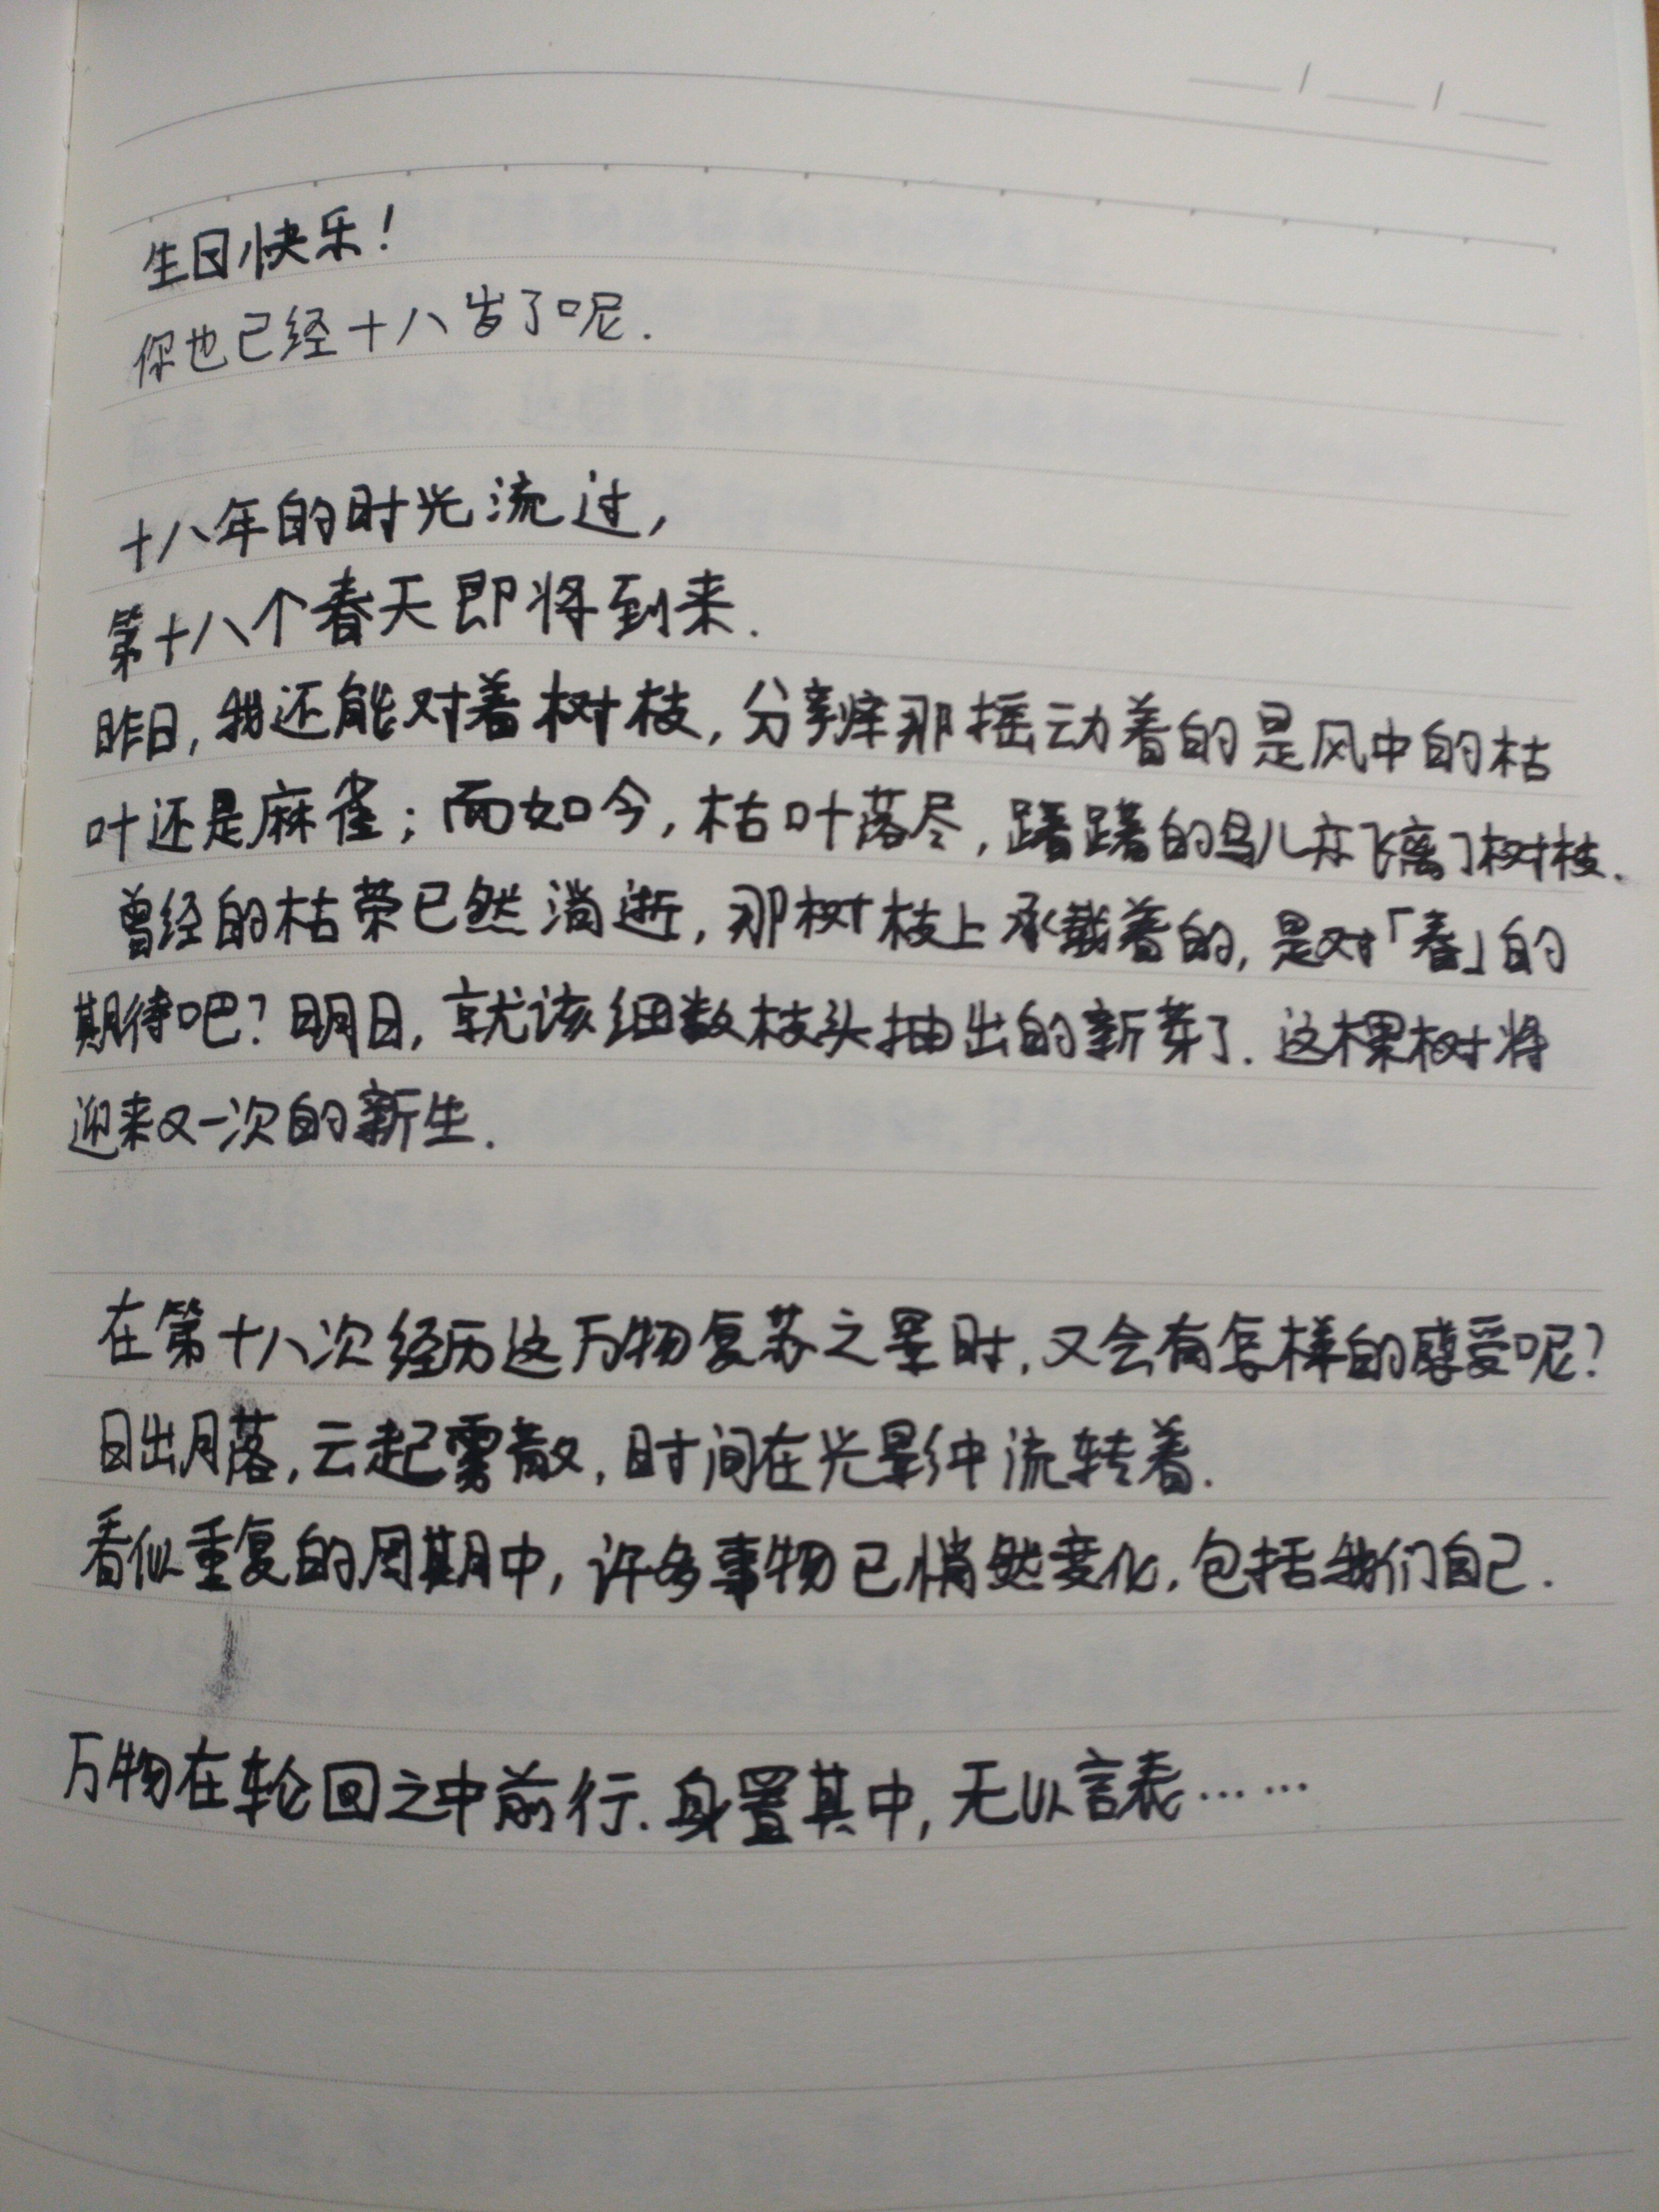 生日快乐！
你也已经十八岁了呢.
十八年的时光流过,
第十八个春天即将到来.
昨日,我还能对着树枝,分辨那摇动着的是风中的枯
叶还是麻雀;而如今,枯叶落尽,踌躇的鸟儿亦飞离了树枝.
曾经的枯荣已然消逝,那树枝上承载着的,是对「春」的
期待吧?明日,就该细数枝头抽出的新芽了.这棵树将
迎来又一次的新生.
在第十八次经历这万物复苏之景时,又会有怎样的感受呢?
日出月落,云起雾散,时间在光影中流转着.
看似重复的周期中,许多事物已悄然变化,包括我们自己.
万物在轮回之中前行.身置其中,无以言表……